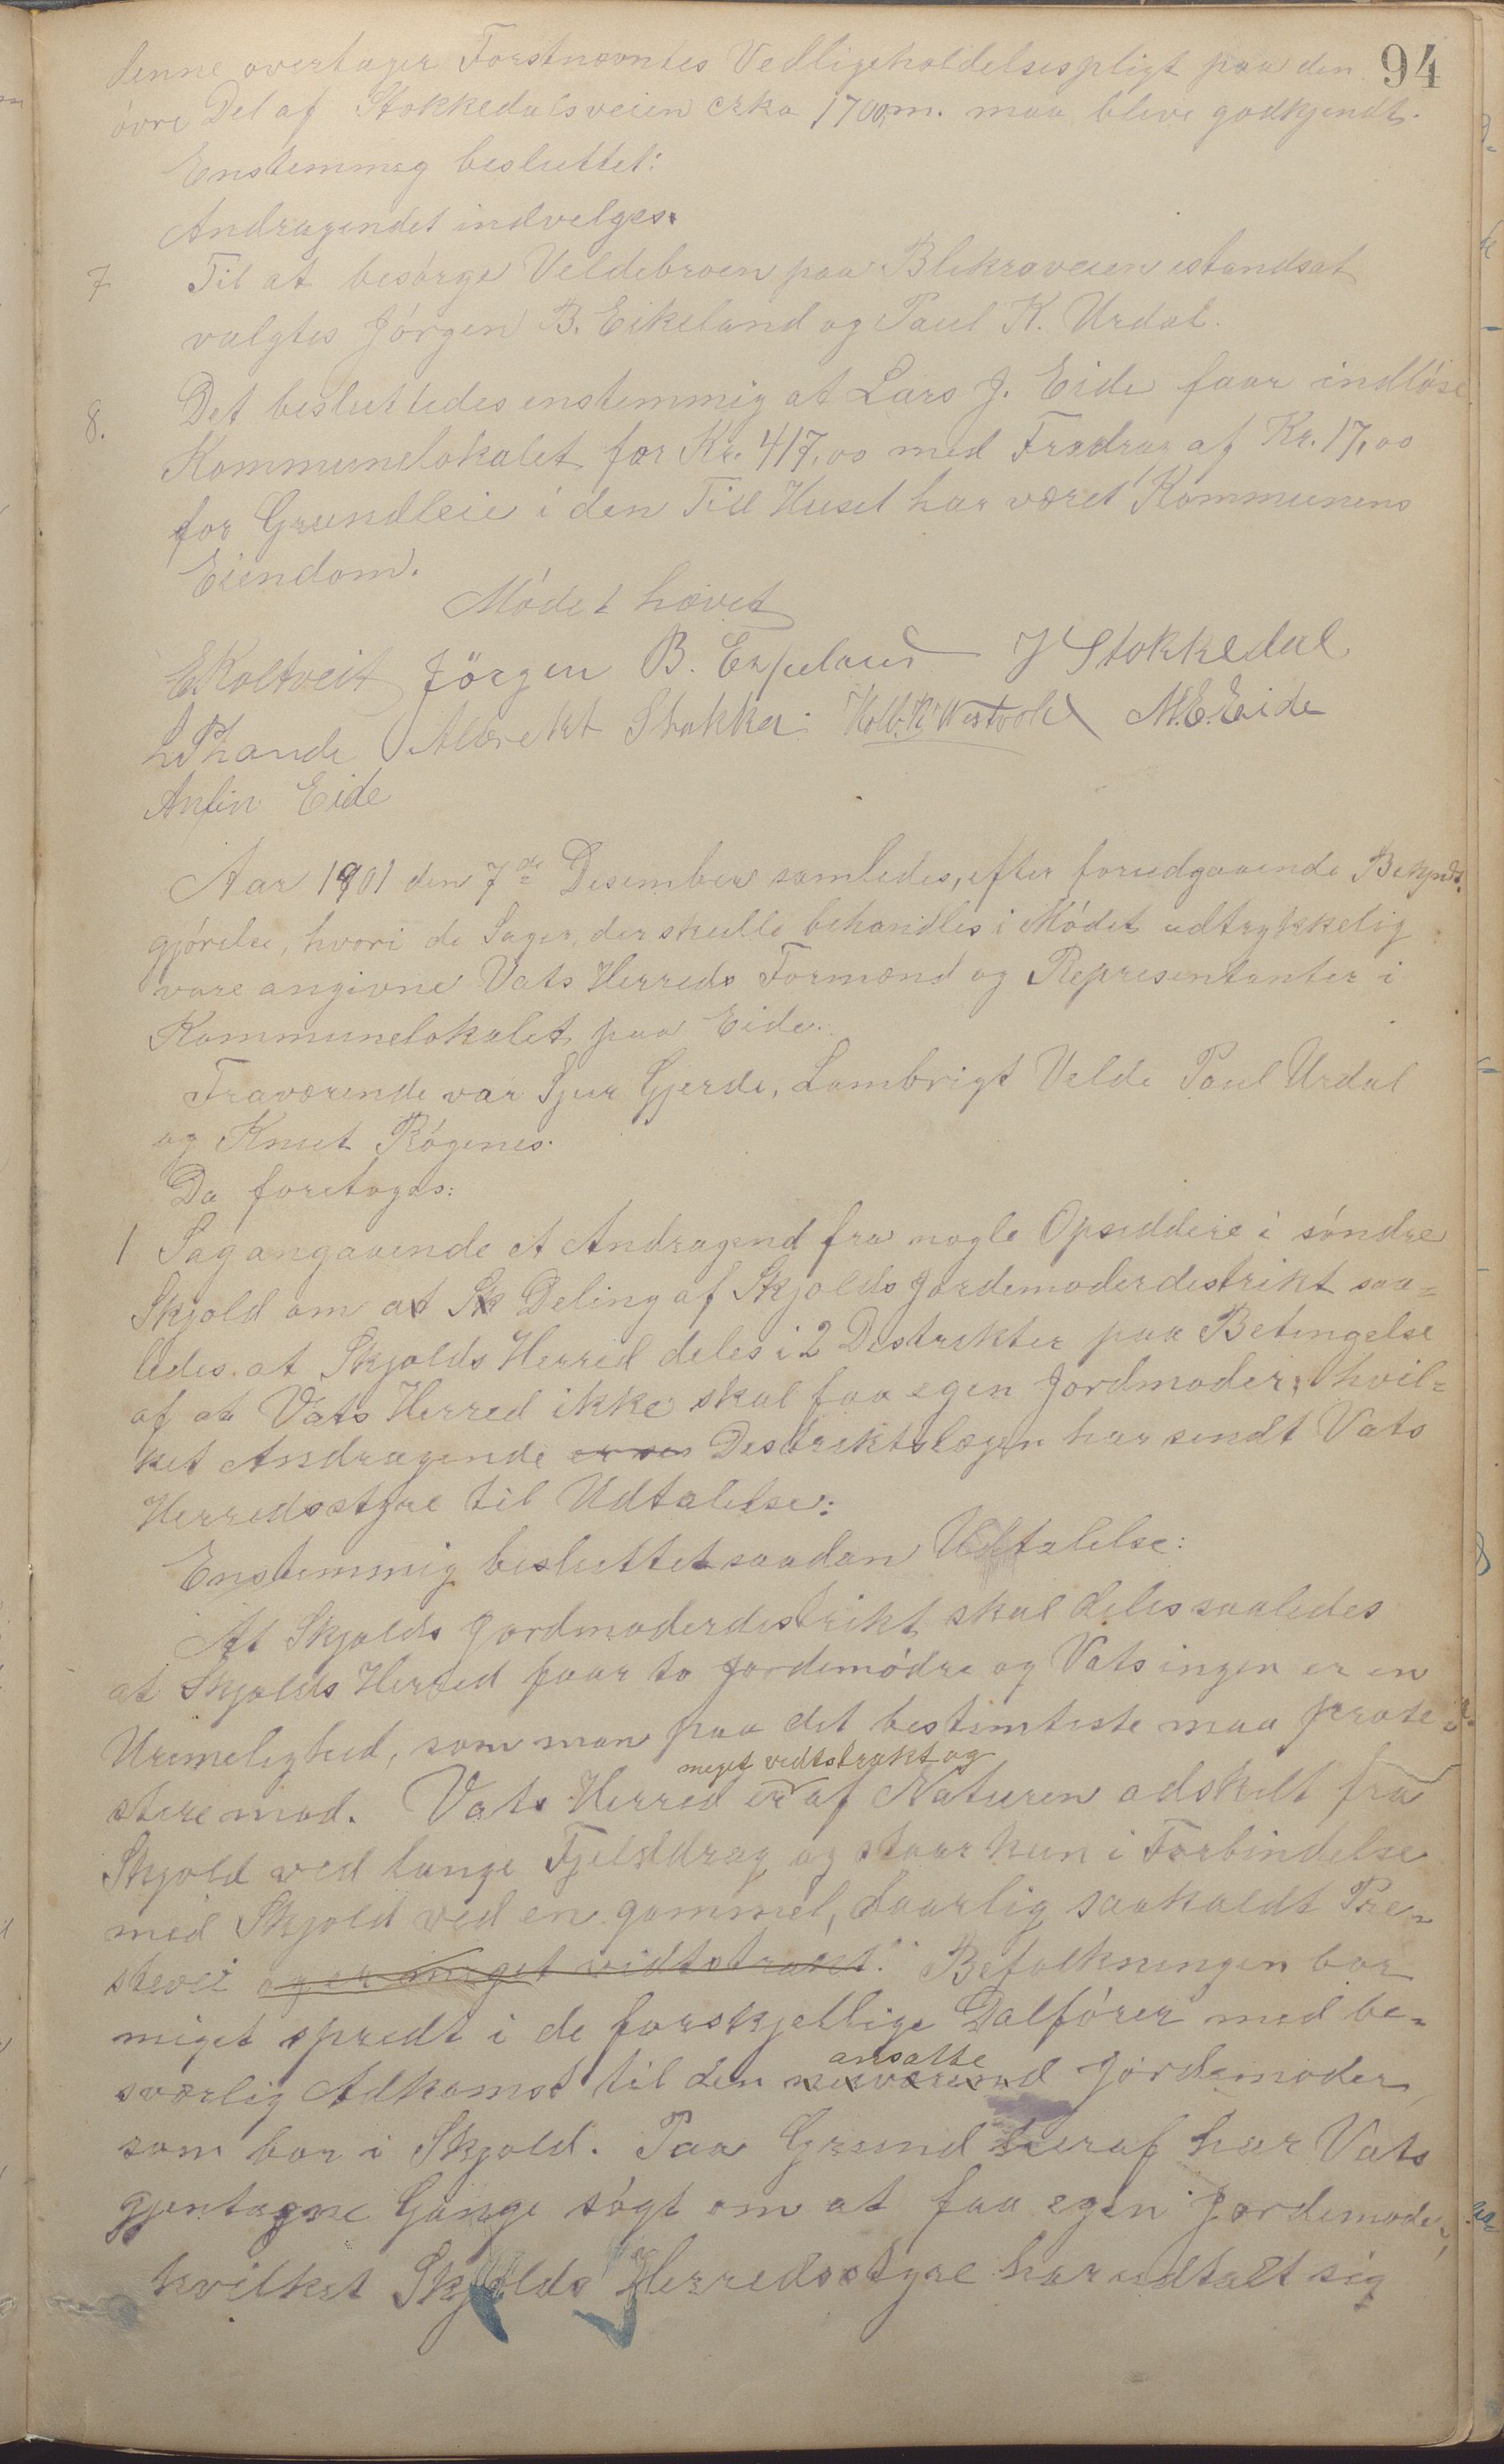 94
denne overtager Forstnævntes Vedligeholdelsespligt paa den
óvre Del af Stokkedalsveien crka 1700 m. maa blive godkjendt.
Enstemmig besluttet:
Andragendet indvelges.
7 Til at besórge Veldebroen paa Blikraveien istandsat
valgtes Jórgen B. Eikeland og Paul K. Urdal.
8. Det besluttedes enstemmig at Lars J. Eide faar indlóse
Kommunelokalet for Kr. 417,00 med Fradrag af Kr. 17,00
for Grundleie i den Tid Huset har været Kommunens
Eiendom.
Módet hævet
E Koltveit Jörgen B. Eikeland J Stokkedal
Albrekt Stakka. M. E. Eide
Anfin Eide
Aar 1901 den 7de Desember samledes, efter forudgaaende Bekjendt-
gjórelse, hvori de Sager, der skulle behandles i Módet udtrykkelig
vare angivne Vats Herreds Formænd og Representanter i
Kommunelokalet paa Eide.
Fraværende var Sjur Gjerde, Lambrigt Velde Paul Urdal
og Knut Rógenes.
Da foretoges:
1 Sag angaaende et Andragend fra nogle Opsiddere i sóndre
Skjold om at Sk Deling af Skjolds Jordemoderdestrikt saa-
ledes at Skjolds Herred deles i 2 Destrikter paa Betingelse
af at Vats Herred ikke skal faa egen Jordmoder, hvil-
ket Andragende Destriktslægen har sendt Vats
Herredsstyre til Udtalelse:
Enstemmig besluttet saadan Udtalelse:
At Skjolds Jordmoderdestrikt skal deles saaledes
at Skjolds Herred faar to Jordemódre og Vats ingen er en
Urimelighed, som man paa det bestemteste maa prote-
meget vidtstrakt og
stere mod. Vats Herred er af Naturen adskilt fra
Skjold ved lange Fjelddrag og staar kun i Forbindelse
med Skjold ved en gammel, daarlig saakaldt Pre-
stevei og er meget vidtstrakt. Befolkningen bor
meget spredt i de forskjellige Dalfórer med be-
ansatte
sværlig Adkomst til den nuværend Jordemoder
som bor i Skjold. Paa Grund heraf har Vats
gjentagne Gange sógt om at faa egen Jordemoder,
hvilket Skjolds Herredsstyre har udtalt sig